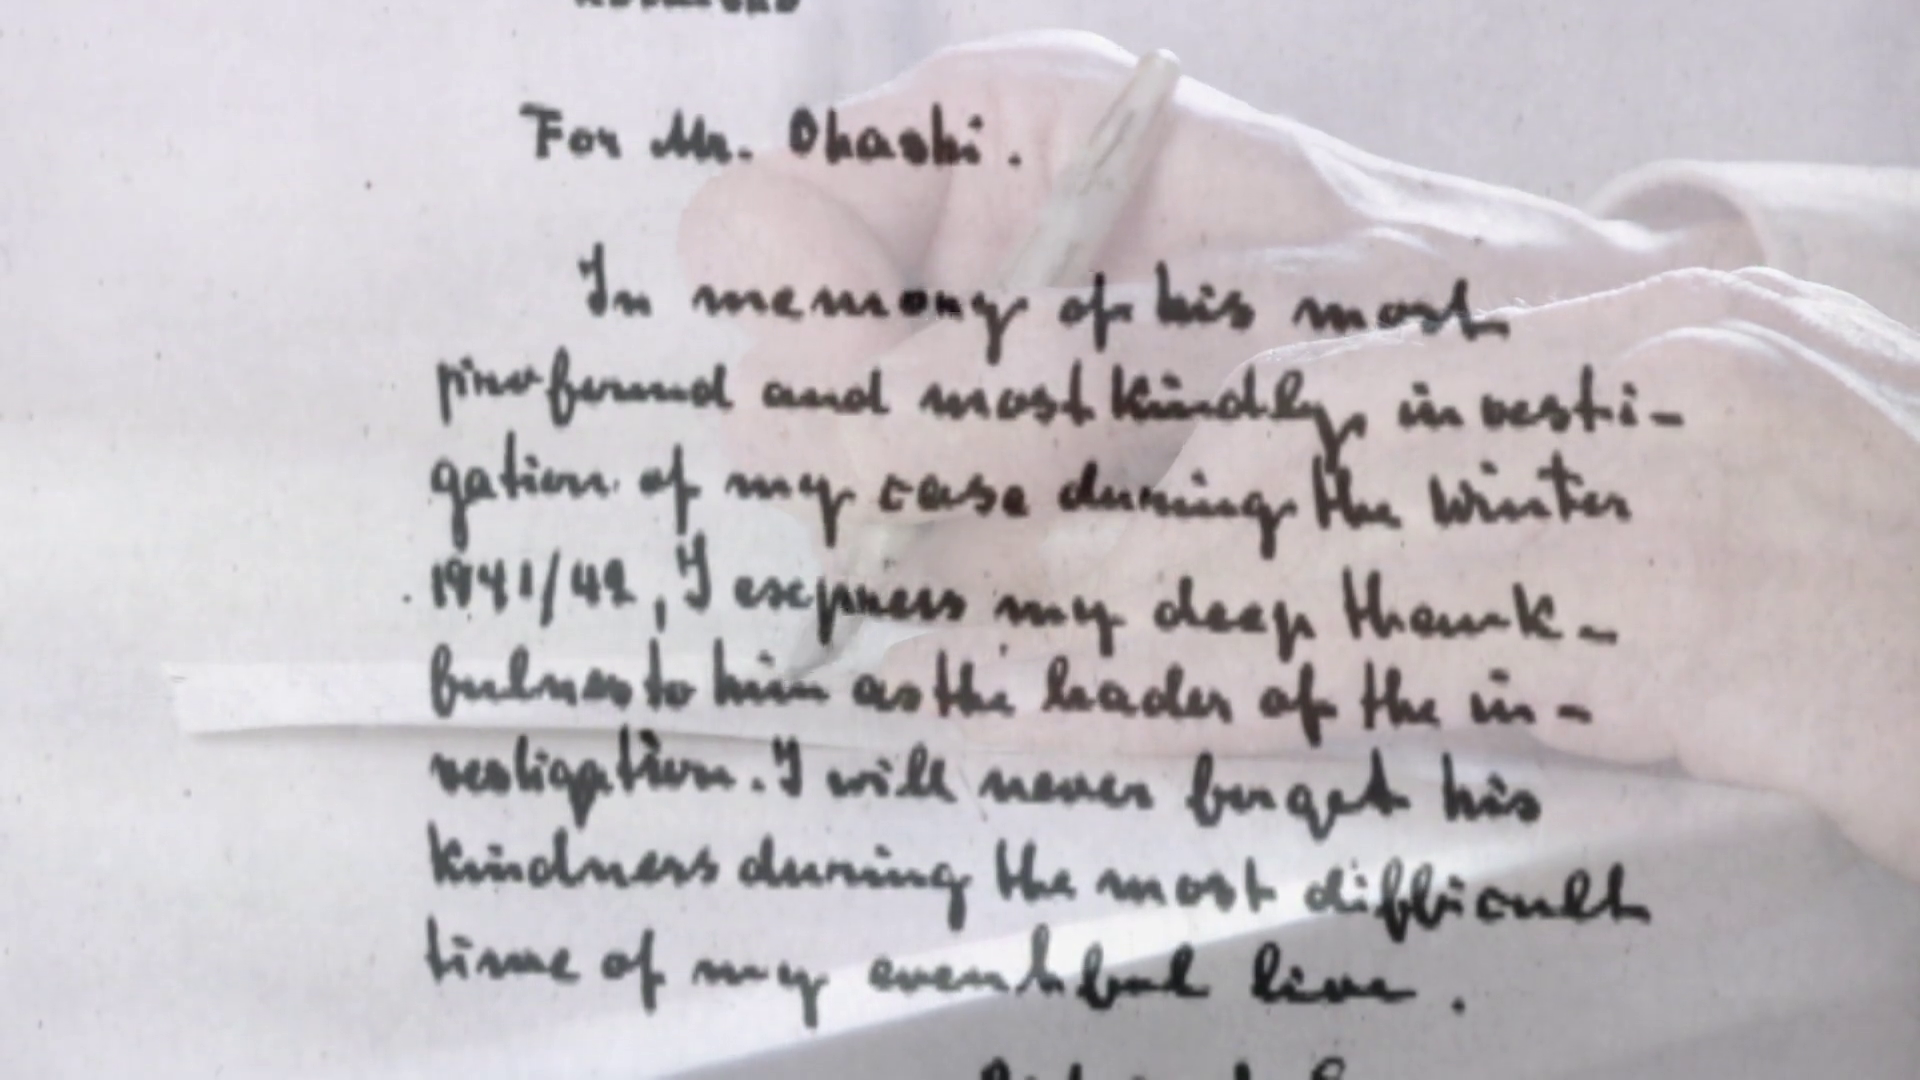 For Mr. Ohashi.
In memory of his most
profound and most kindly investi-
gation of my case during the winter
1941/42, I express my deep thank-
fulness to him as the leader of the in-
vestigation. I will never forget his
kindness during the most difficult
time of my eventful live.